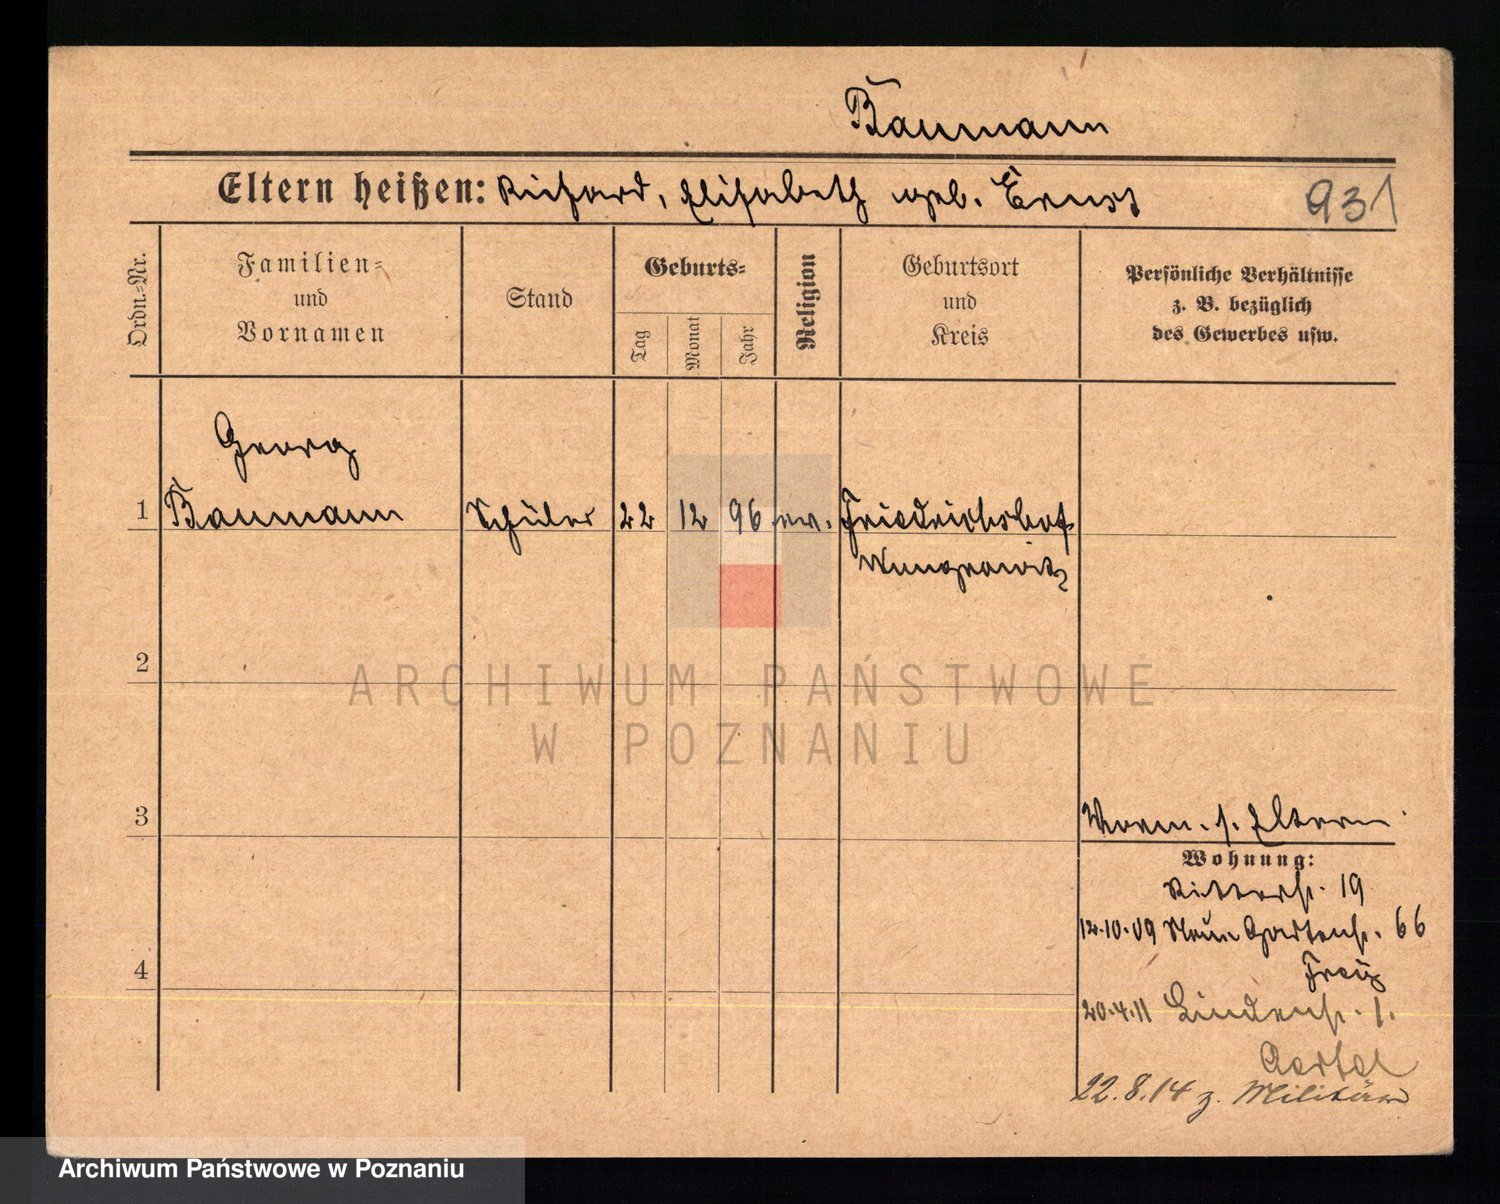 Baumann
Eltern heißen: Richard, Elisabeth geb. Ernst
931
Ordn.-Nr.
Familien-
und
Vornamen
Stand
Geburts-
Tag
Monat
Jahr
Religion
Geburtsort
und
Kreis
Persönliche Verhältnisse
z. B. bezüglich
des Gewerbes usw.
Georg
1 Baumann Schüler 22 12 96 ev. Friedrichshof
Wongrowitz
2
ARCHIWUM PAŃSTWOWE
W POZNANIU
3
s. Eltern
Wohnung:
Ritterstr. 19
12.10.09 Neue Gartenstr. 66
4
20.4.11 Lindenstr. 1.
22.8.14 z. Militär
Archiwum Państwowe w Poznaniu